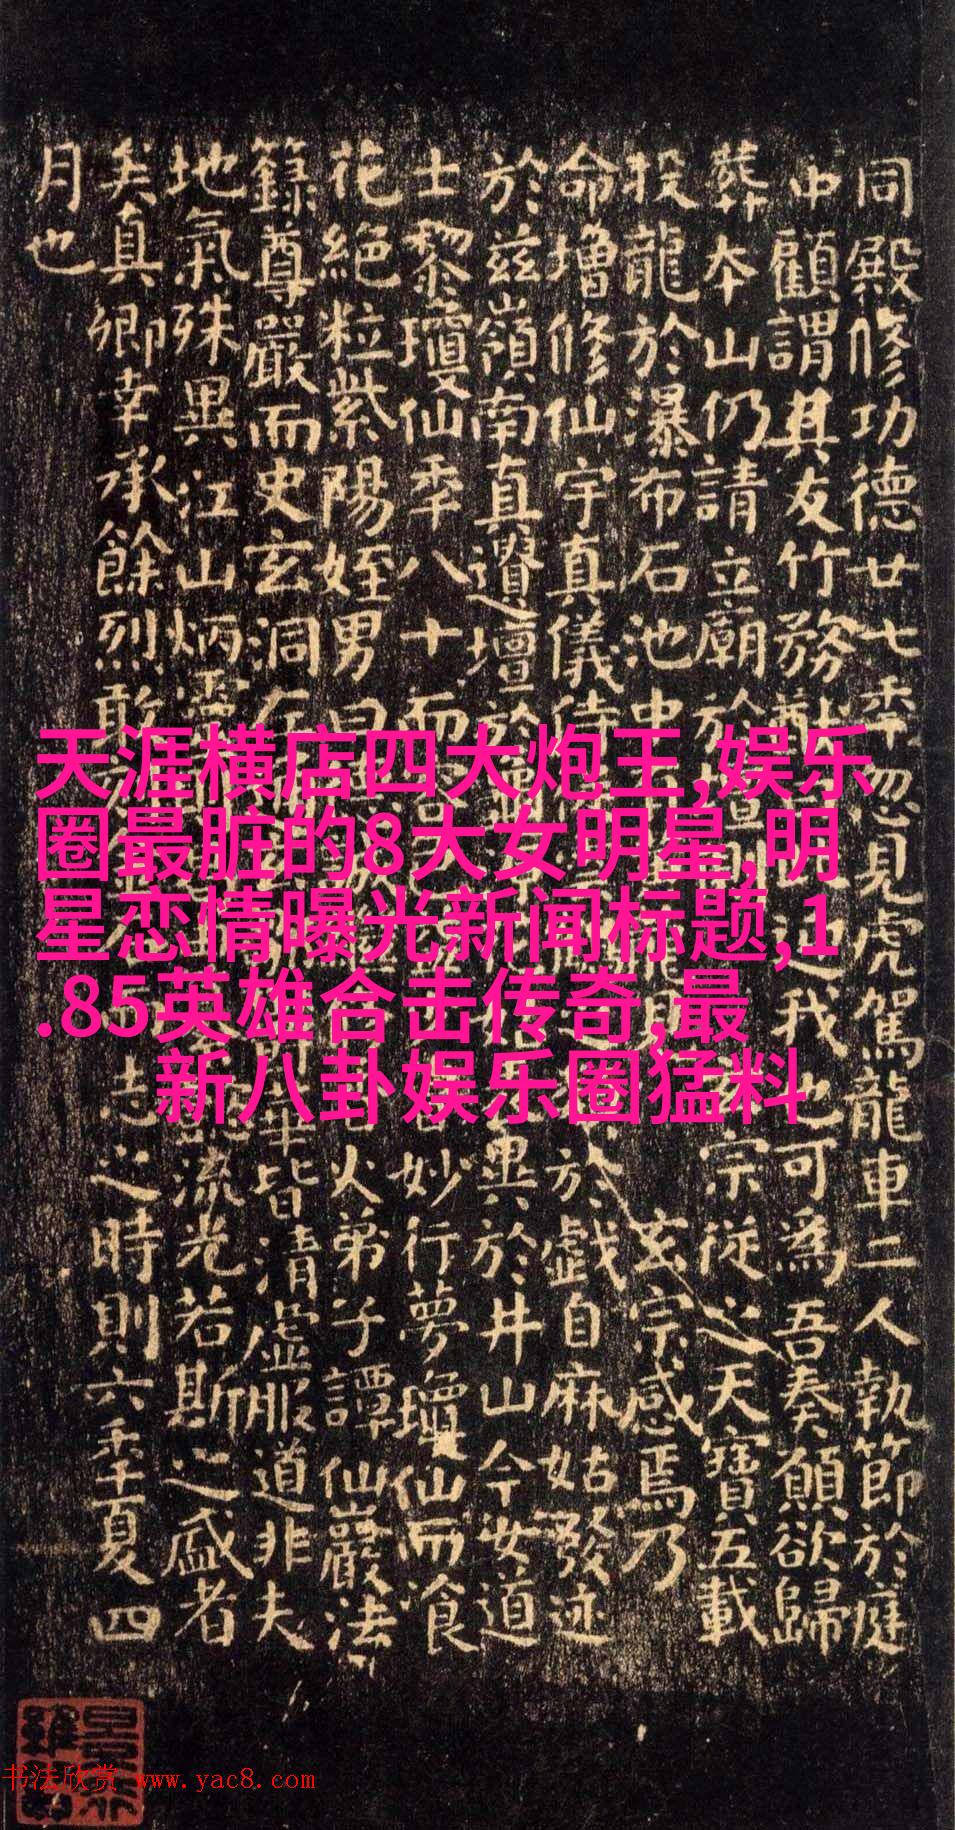 同殿修功德廿七年忽見虎駕龍車二人執節於庭
中顧謂其友竹務猷此迎我也可為吾奏願欲歸
葬本山仍請立廟於壇側宗從之天寶五載
投龍於瀑布石池中龍見玄宗感焉乃
命增修仙宇真儀侍於戲自麻姑發迹
於茲嶺南真遺壇於異於井山今女道
士黎瓊仙年八十而妙行夢瓊仙而飡
花絕粒紫陽姪男曰火弟子譚仙巖法
籙尊嚴而史玄洞左華皆清虛服道非夫
地氣殊異江山炳靈懿流光若斯之盛者
矣真卿幸承餘烈敢志之時則六年夏四
月也
天涯横店四大炮王,娱乐
圈最脏的8大女明星,明
星恋情曝光新闻标题,1
.85英雄合击传奇,最
新八卦娱乐圈猛料
书法欣赏 www.yac8.com